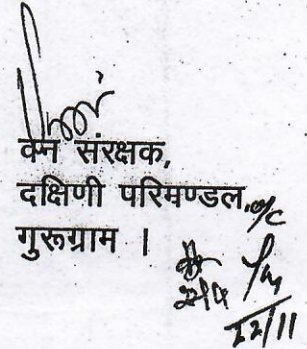 वन संरक्षक,
दक्षिणी परिमण्डल,
गुरूग्राम ।
22/11